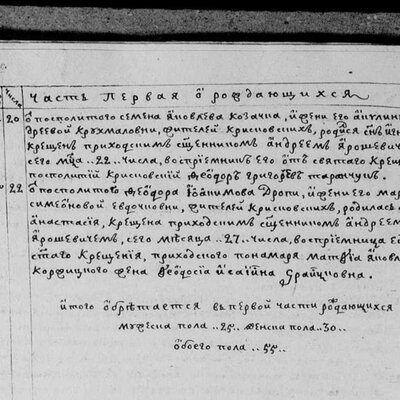 числа
часть первая ѿ рождающихся
20 ѿ посполитого семена яковлева козачка, и жени его акулини
дреевой крухмаловни, жителей крисковскихъ, родися снъ
крещенъ приходскимъ сщенникомъ андреемъ ярошевиче
сего мца .. 22 .. числа, воспріемникъ его ѿ святаго креще
посполитій крисковскій феодоръ григориевъ таранчукъ.
22 ѿ посполитого феодора іоакимова дропи, и жени его мар
симеоновой евдочкини, жителей крисковскихъ, родилась
анастасія, крещена приходскимъ сщенникомъ андреем
ярошевичемъ, сего месяца .. 27 .. числа, воспріемница е
стаго крещенія, приходского понамаря матфіа яковл
жена феодосія исаіина
итого обретается въ первой части рождающихся
мужеска пола .. 25 .. женска пола .. 30 ..
обоего пола .. 55 ..